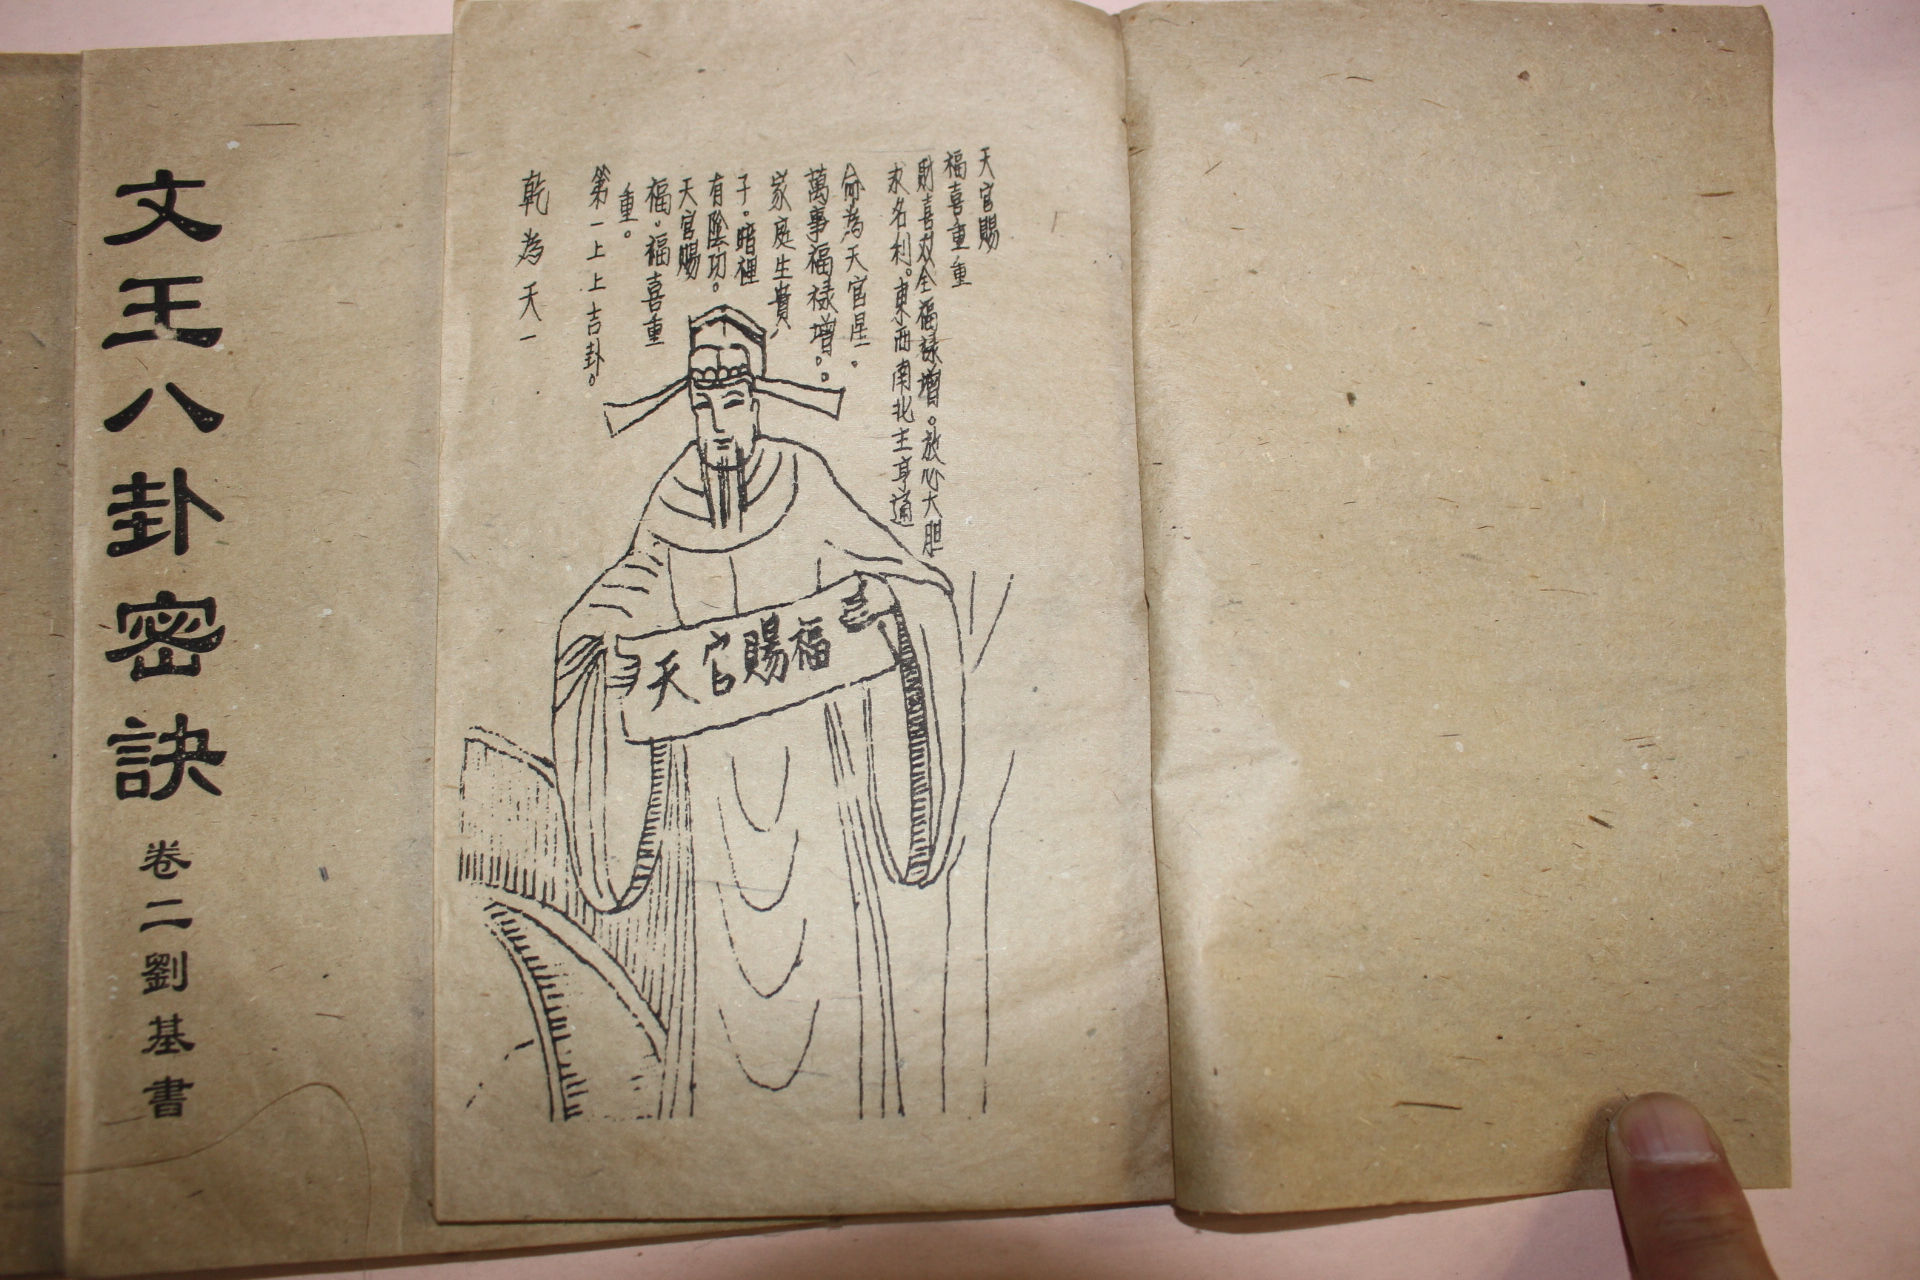 天官賜
福喜重重
財喜双全福祿增。放心大胆
求名利。東西南北主亨通
命為天官星。
萬事福祿增。
家庭生貴
子。暗裡
有陰功。
天官賜
福。福喜重
重。
第一上上吉卦。
乾為天一
天官賜福
文王八卦密訣
卷二劉基書